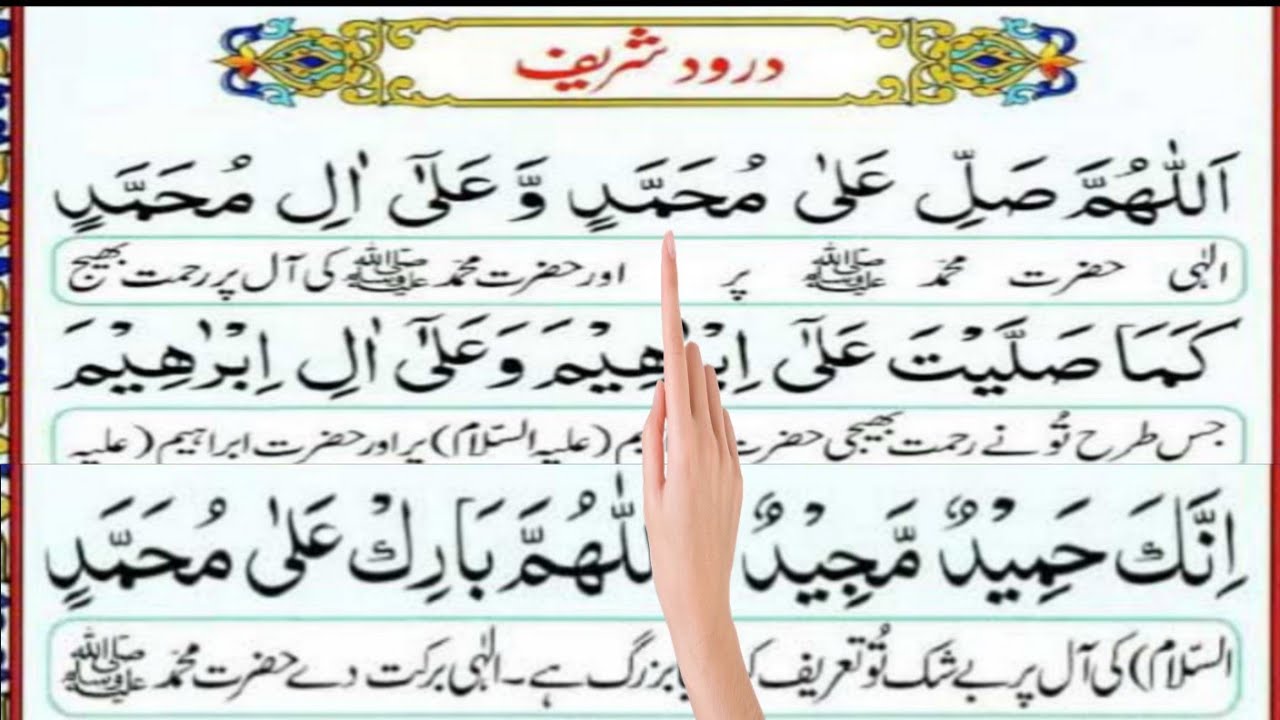 درود شریف
اَللّٰهُمَّ صَلِّ عَلٰى مُحَمَّدٍ وَّ عَلٰٓى اٰلِ مُحَمَّدٍ
الٰہی حضرت محمد ﷺ پر اور حضرت محمد ﷺ کی آل پر رحمت بھیج
كَمَا صَلَّيْتَ عَلٰٓى اِبْرٰهِيْمَ وَعَلٰٓى اٰلِ اِبْرٰهِيْمَ
جس طرح تُو نے رحمت بھیجی حضرت (علیہ السّلام) پر اور حضرت ابراہیم (علیہ
اِنَّكَ حَمِيْدٌ مَّجِيْدٌ بَارِكْ عَلٰى مُحَمَّدٍ
السّلام) کی آل پر بے شک تُو تعریف بزرگ ہے۔ الٰہی برکت دے حضرت محمد ﷺ